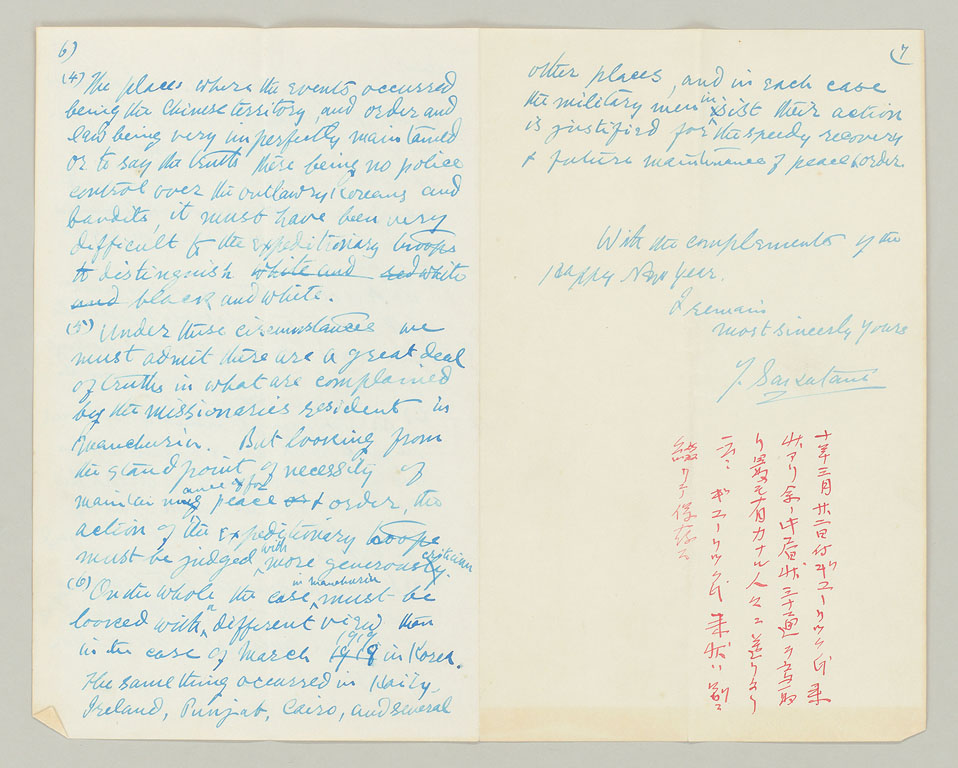 6)
(4) The places where the events occurred
being the Chinese territory, and order and
law being very imperfectly maintained
or to say the truth there being no police
control over the outlawry Koreans and
bandits, it must have been very
difficult to the expeditionary troops
to distinguish white and red white
and black and white.
(5) Under these circumstances we
must admit there are a great deal
of truths in what are complained
by the missionaries resident in
Manchuria. But looking from
the stand point of necessity of
maintaining peace & order, the
action of the expeditionary troops
must be judged with more generous criticism.
(6) On the whole the case in Manchuria must be
looked with a different view than
in the case of March 1919 in Korea.
The same thing occurred in Haity,
Ireland, Punjab, Cairo, and several
7
other places, and in each case
the military men insist their action
is justified for the speedy recovery
& future maintenance of peace & order.
With the complements of the
Happy New Year.
I remain
most sincerely yours
Y. Sakatani
十年三月廿二日付ギューリック氏来
状アリ余ノ書状三十通ヲ受取
リ最モ有力ナル人々ニ送リタリ
云々 ギューリック氏来状ハ別ニ
綴リテ保存ス